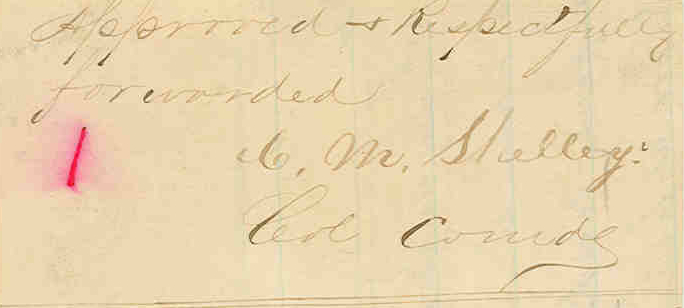 Approved & Respectfully
forwarded
C. M. Shelley:
Col Comdg